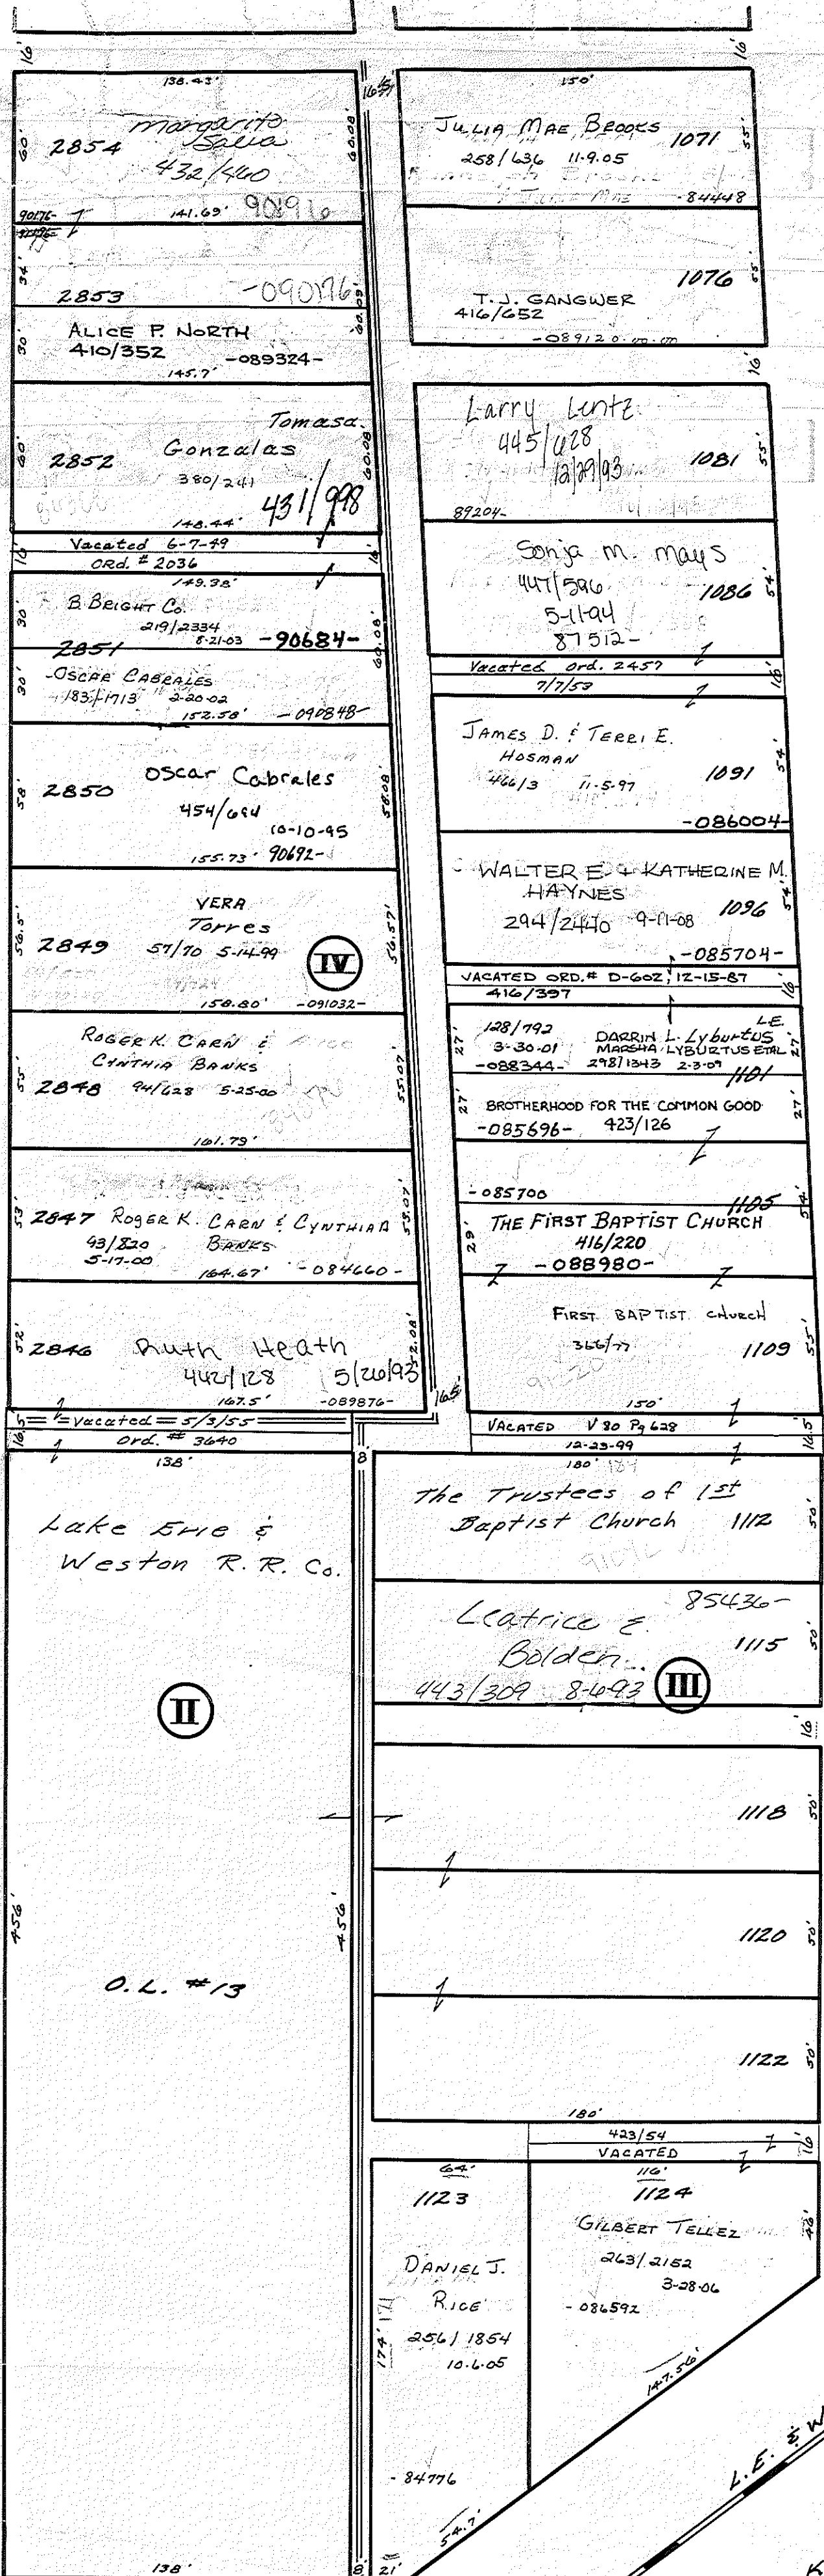 16'
16'
138.43'
16.5'
60'
2854
Margarito
Salia
432/460
60.08'
90176-
141.69'
90896
34'
2853
-090176
60.09'
30'
ALICE P. NORTH
410/352
-089324-
145.7'
60'
2852
Tomasa
Gonzalas
380/241
431/998
60.08'
148.44'
16'
Vacated 6-7-49
16'
ORd. # 2036
149.38'
30'
B. BRIGHT Co.
219/2334
8-21-03
-90684-
60.08'
2851
30'
OSCAR CABRALES
183/1713 2-20-02
152.58'
-090848-
58'
2850
Oscar Cabrales
454/694
10-10-95
58.08'
155.73'
90692-
56.5'
2849
VERA
Torres
57/70 5-14-99
IV
56.57'
158.80'
-091032-
55'
ROGER K. CARN &
CYNTHIA BANKS
2848
94/628 5-25-00
55.07'
161.79'
53'
2847
ROGER K. CARN & CYNTHIA A
BANKS
93/820
5-17-00
53.07'
164.67'
-084660-
52'
2846
Ruth Heath
442/128
5/26/93
52.08'
167.5'
-089876-
16.5'
16.5
Vacated 5/3/55
Ord. # 3640
138'
8'
Lake Erie &
Weston R. R. Co.
II
456'
456'
O.L. #13
138'
8'
150'
JULIA MAE BROOKS
1071
55'
258/636 11-9-05
-84448
1076
55'
T. J. GANGWER
416/652
-089120-00-00
16'
Larry Lentz
445/628
12/29/93
1081
55'
89204-
Sonja M. Mays
447/596
1086
54'
5-11-94
87512-
Vacated ord. 2457
16'
7/7/53
JAMES D. & TERRI E.
HOSMAN
466/3 11-5-97
1091
54'
-086004-
WALTER E. & KATHERINE M.
HAYNES
294/2440 9-11-08
1096
54'
-085704-
VACATED ORD.# D-602; 12-15-87
416/397
16'
27'
128/792
3-30-01
-088344-
L.E.
DARRIN L. Lyburtus
MARSHA LYBURTUS ETAL
298/1343 2-3-09
27'
1101
27'
BROTHERHOOD FOR THE COMMON GOOD
27'
-085696-
423/126
-085700
1105
54'
29'
THE FIRST BAPTIST CHURCH
416/220
-088980-
FIRST BAPTIST CHURCH
366/77
1109
55'
150'
VACATED V 80 Pg 628
16.5'
12-23-99
180'
The Trustees of 1st
Baptist Church
1112
50'
85436-
Leatrice E.
Bolden
1115
50'
443/309 8-6-93
III
16'
1118
50'
1120
50'
1122
50'
180'
423/54
16'
VACATED
64'
1123
DANIEL J.
RICE
174'
256/1854
10-6-05
-84776
54.7'
21'
116'
1124
GILBERT TELLEZ
46'
263/2152
3-28-06
-086592
147.56'
L.E. & W